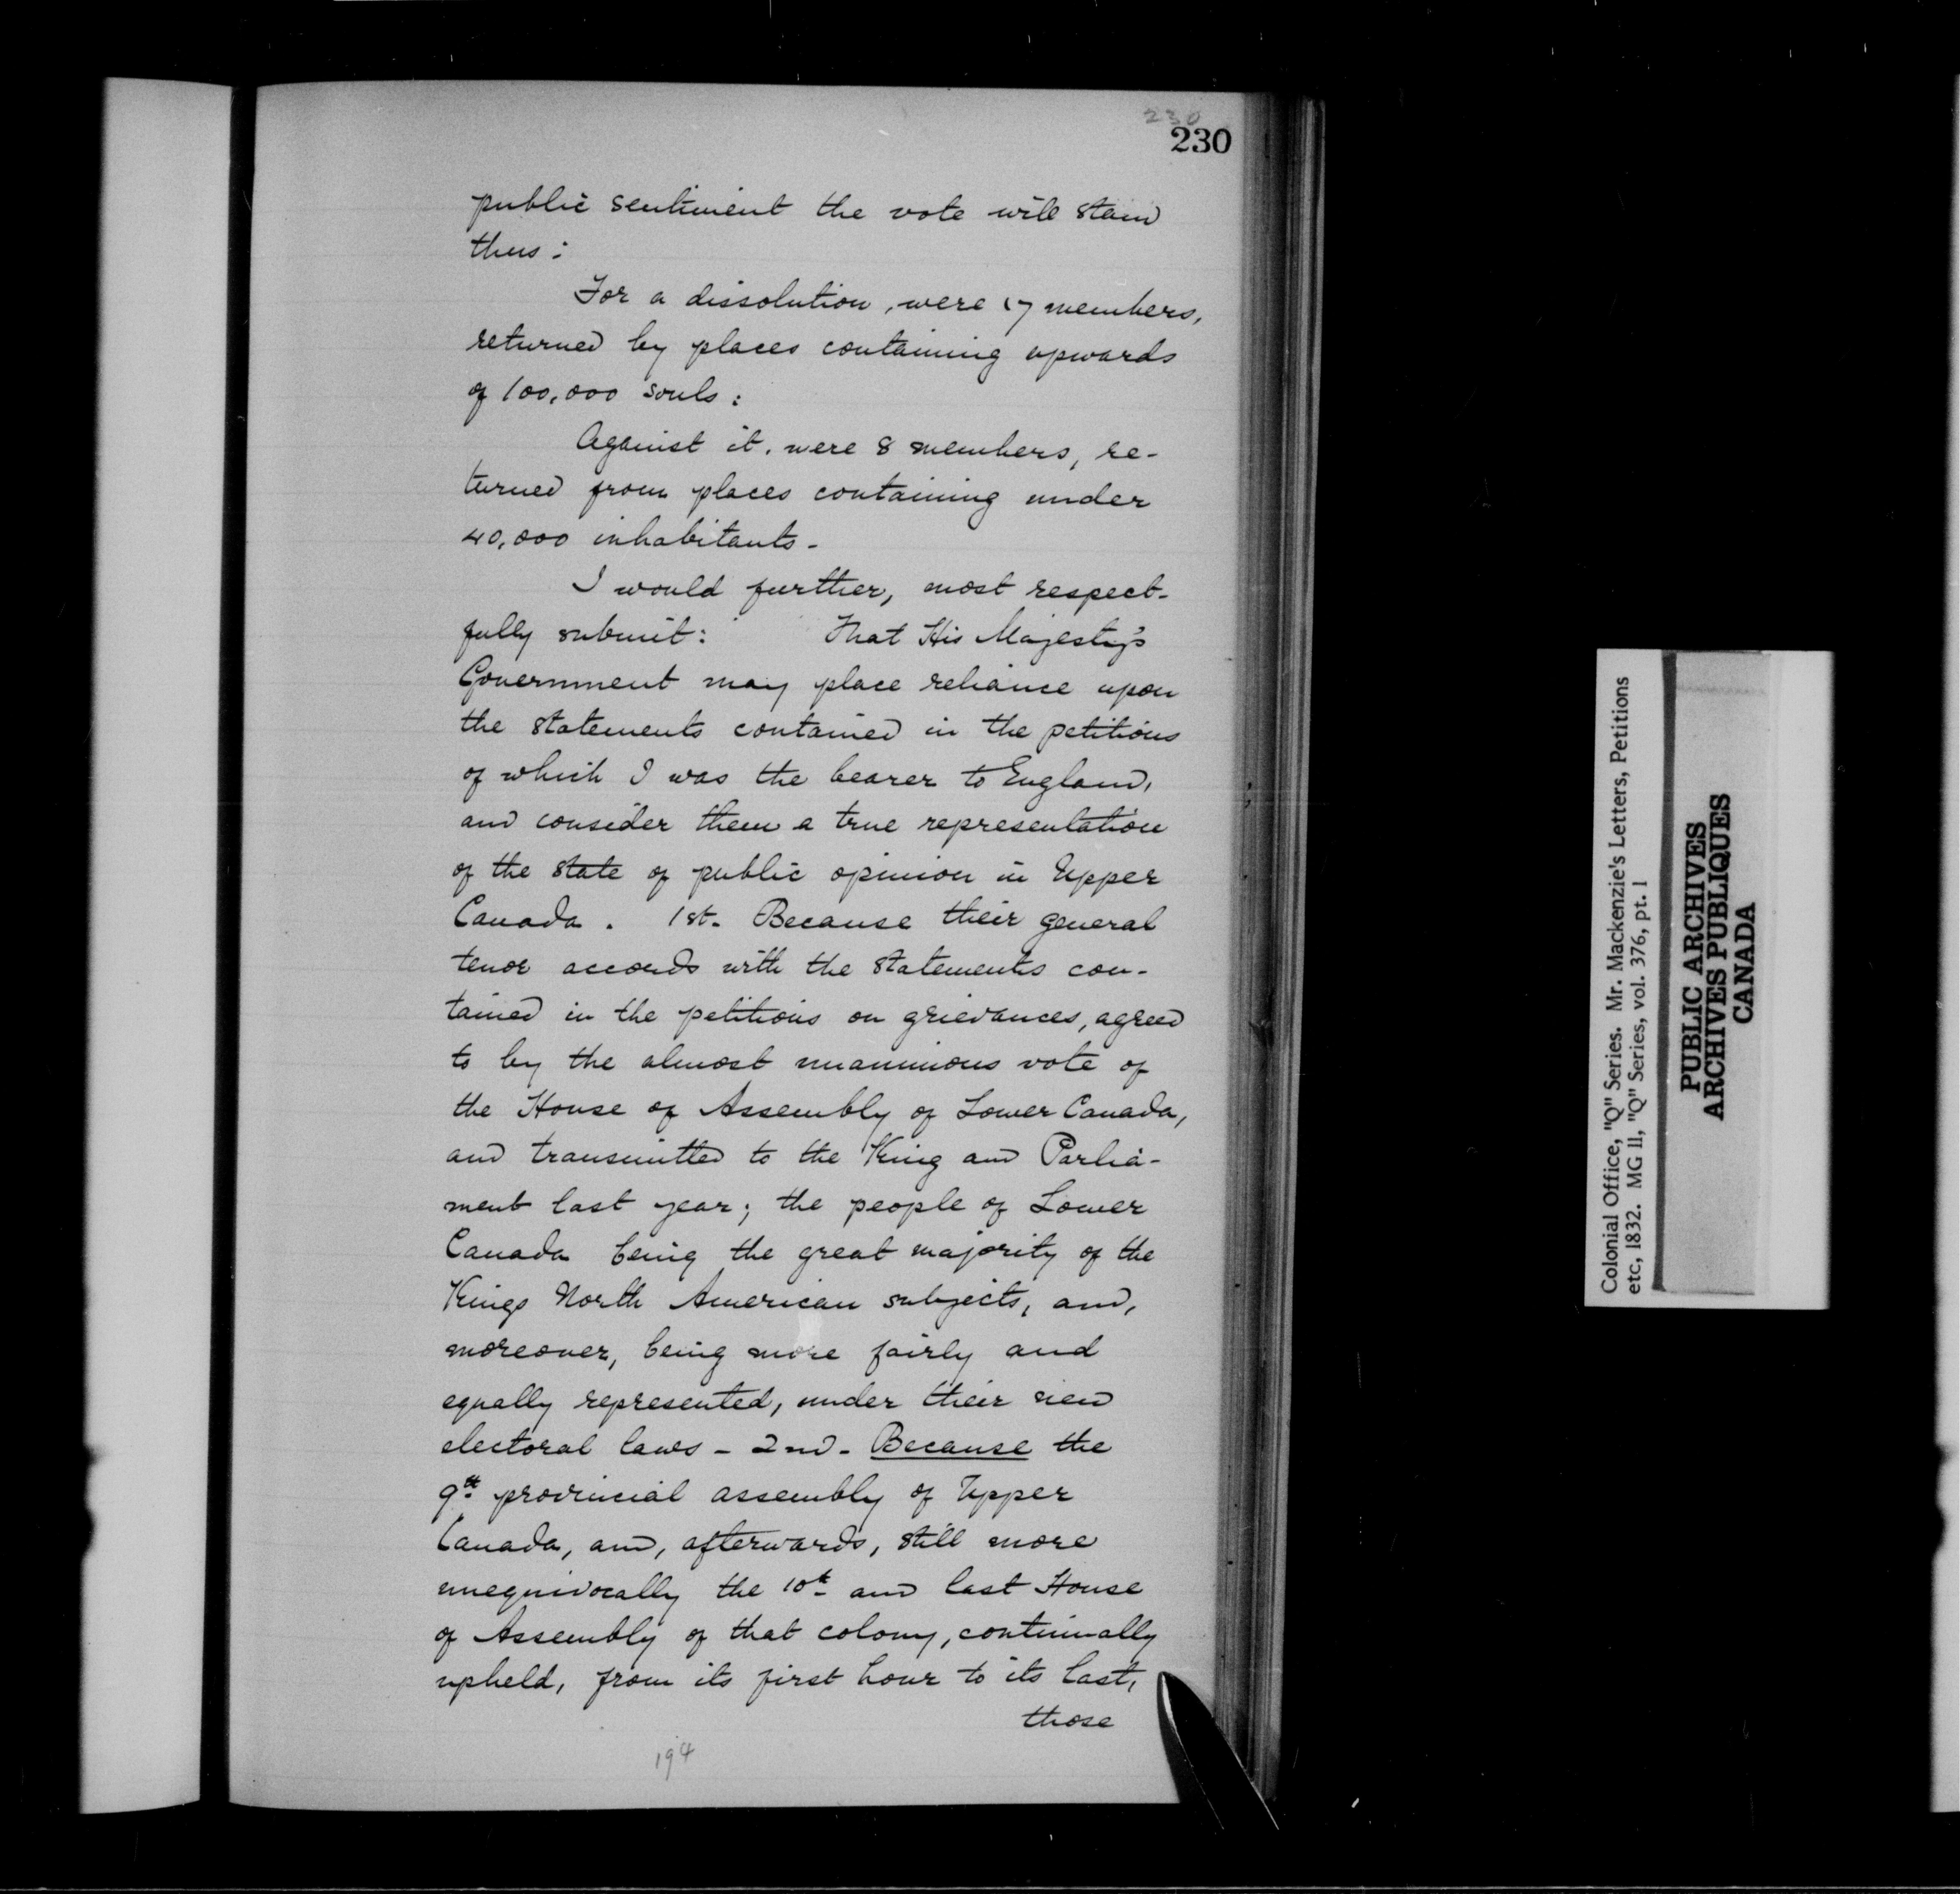 230
230
public sentiment the vote will stand
thus:
For a dissolution, were 17 members,
returned by places containing upwards
of 100,000 souls:
Against it, were 8 members, re-
turned from places containing under
40,000 inhabitants-
I would further, most respect-
fully submit: That His Majesty's
Government may place reliance upon
the statements contained in the petitions
of which I was the bearer to England,
and consider them a true representation
of the state of public opinion in Upper
Canada. 1st. Because their general
tenor accords with the statements con-
tained in the petitions on grievances, agreed
to by the almost unanimous vote of
the House of Assembly of Lower Canada,
and transmitted to the King and Parlia-
ment last year; the people of Lower
Canada being the great majority of the
Kings North American subjects, and,
moreover, being more fairly and
equally represented, under their new
electoral laws - 2nd - Because the
9th provincial assembly of Upper
Canada, and, afterwards, still more
unequivocally the 10th and last House
of Assembly of that colony, continually
upheld, from its first hour to its last,
those
194
Colonial Office, "Q" Series. Mr. Mackenzie's Letters, Petitions
etc, 1832. MG 11, "Q" Series, vol. 376, pt. 1
PUBLIC ARCHIVES
ARCHIVES PUBLIQUES
CANADA